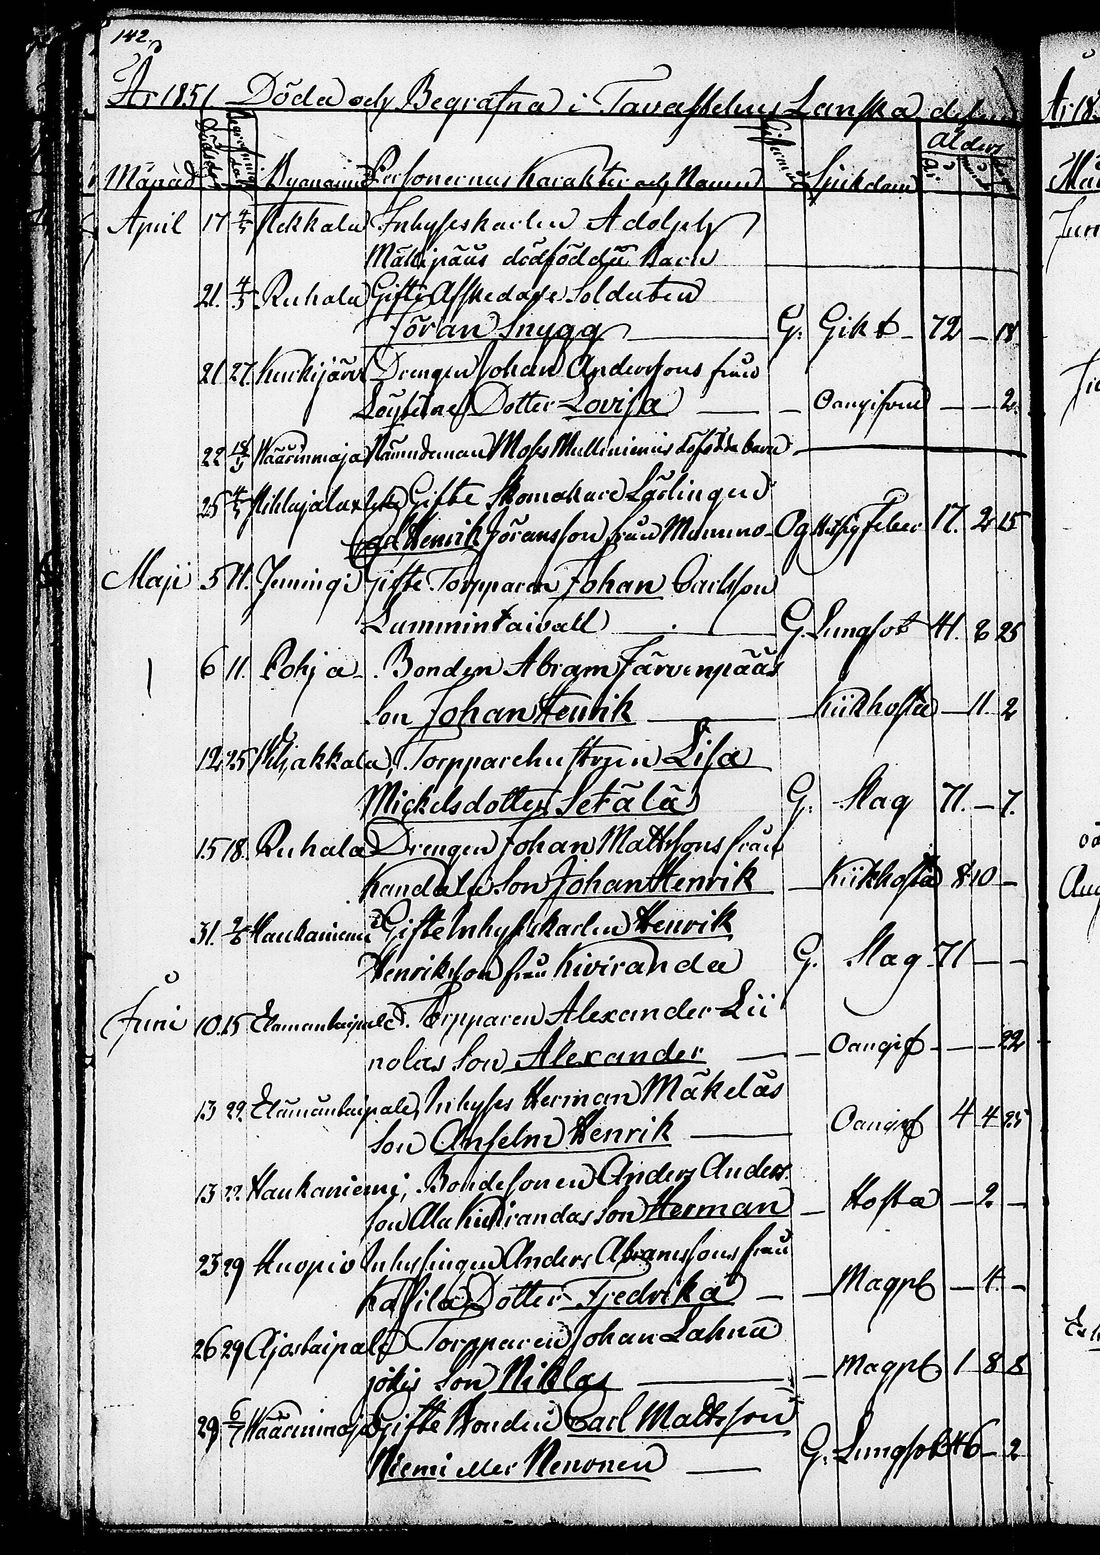 142.
År 1851 Döda och Begrafna i Tavastehus Landska
Månad Dödsdag Begrafnings dag Bynamn Personernes Karakter och Namn Sjukdom Ålder
År
April 17 4/5 Rekkala Inhyseskarlen Adolph
Mattipääs dödfödda Barn
21. 4/5 Ruhala Gifte Afskedade Soldaten
Jöran Snygg G. Gikt 72 — 18
21 27. Kurkijärvi Drengen Johan Anderssons från
Dotter Lovisa — — Oangifven — — 2.
22 18/5 Wäärinmaja Nämndeman Moses Mullinie
25 4/5 Gifte Skomakare Lärlingen
Henrik Jöransson från Og Feber 17. 2 15
Maji 5 11. Jeningi Gifte Torpparen Johan Carlsson
Lummintaivall G. Lungsot 41. 8 25
6 11. Pohja Bonden Abram Järvenpääs
Son Johan Henrik Kikhosta — 11 2
12 25 Torpparehustrun Lisa
Mickelsdotter Setälä G. Slag 71. — 7.
15 18. Ruhala Drengen Johan Mattssons från
Kandala Son Johan Henrik Kikhosta 8 10 —
31. 2/6 Haukaniemi Gifte Inhyseskarlen Henrik
Henriksson från Kiviranda G. Slag 71 — —
Juni 10 15 Elämäntaipale. Torpparen Alexander Lii
nolas Son Alexander — — Oangif — — 22
13 22. Elämäntaipale, Inhyses Herman Mäkeläs
Son Anselm Henrik Oangif 4 4 25
13 22. Haukaniemi, Bondesonen Anders Anders
son Ala Kivirandas Son Herman — Hosta — 2 —
23 29 Kuopio Inhysingen Anders Abramssons från
Dotter Fredrika — — Magpl — 4 —
26 29 Ajostaipale Torpparen Johan Lahna
jokis Son Niklas — Magpl 1 8 8
29 6/7 Wäärinmaja Gifte Bonden Carl Mattsson
Niemi eller Nenonen G. Lungsot 46 — 2